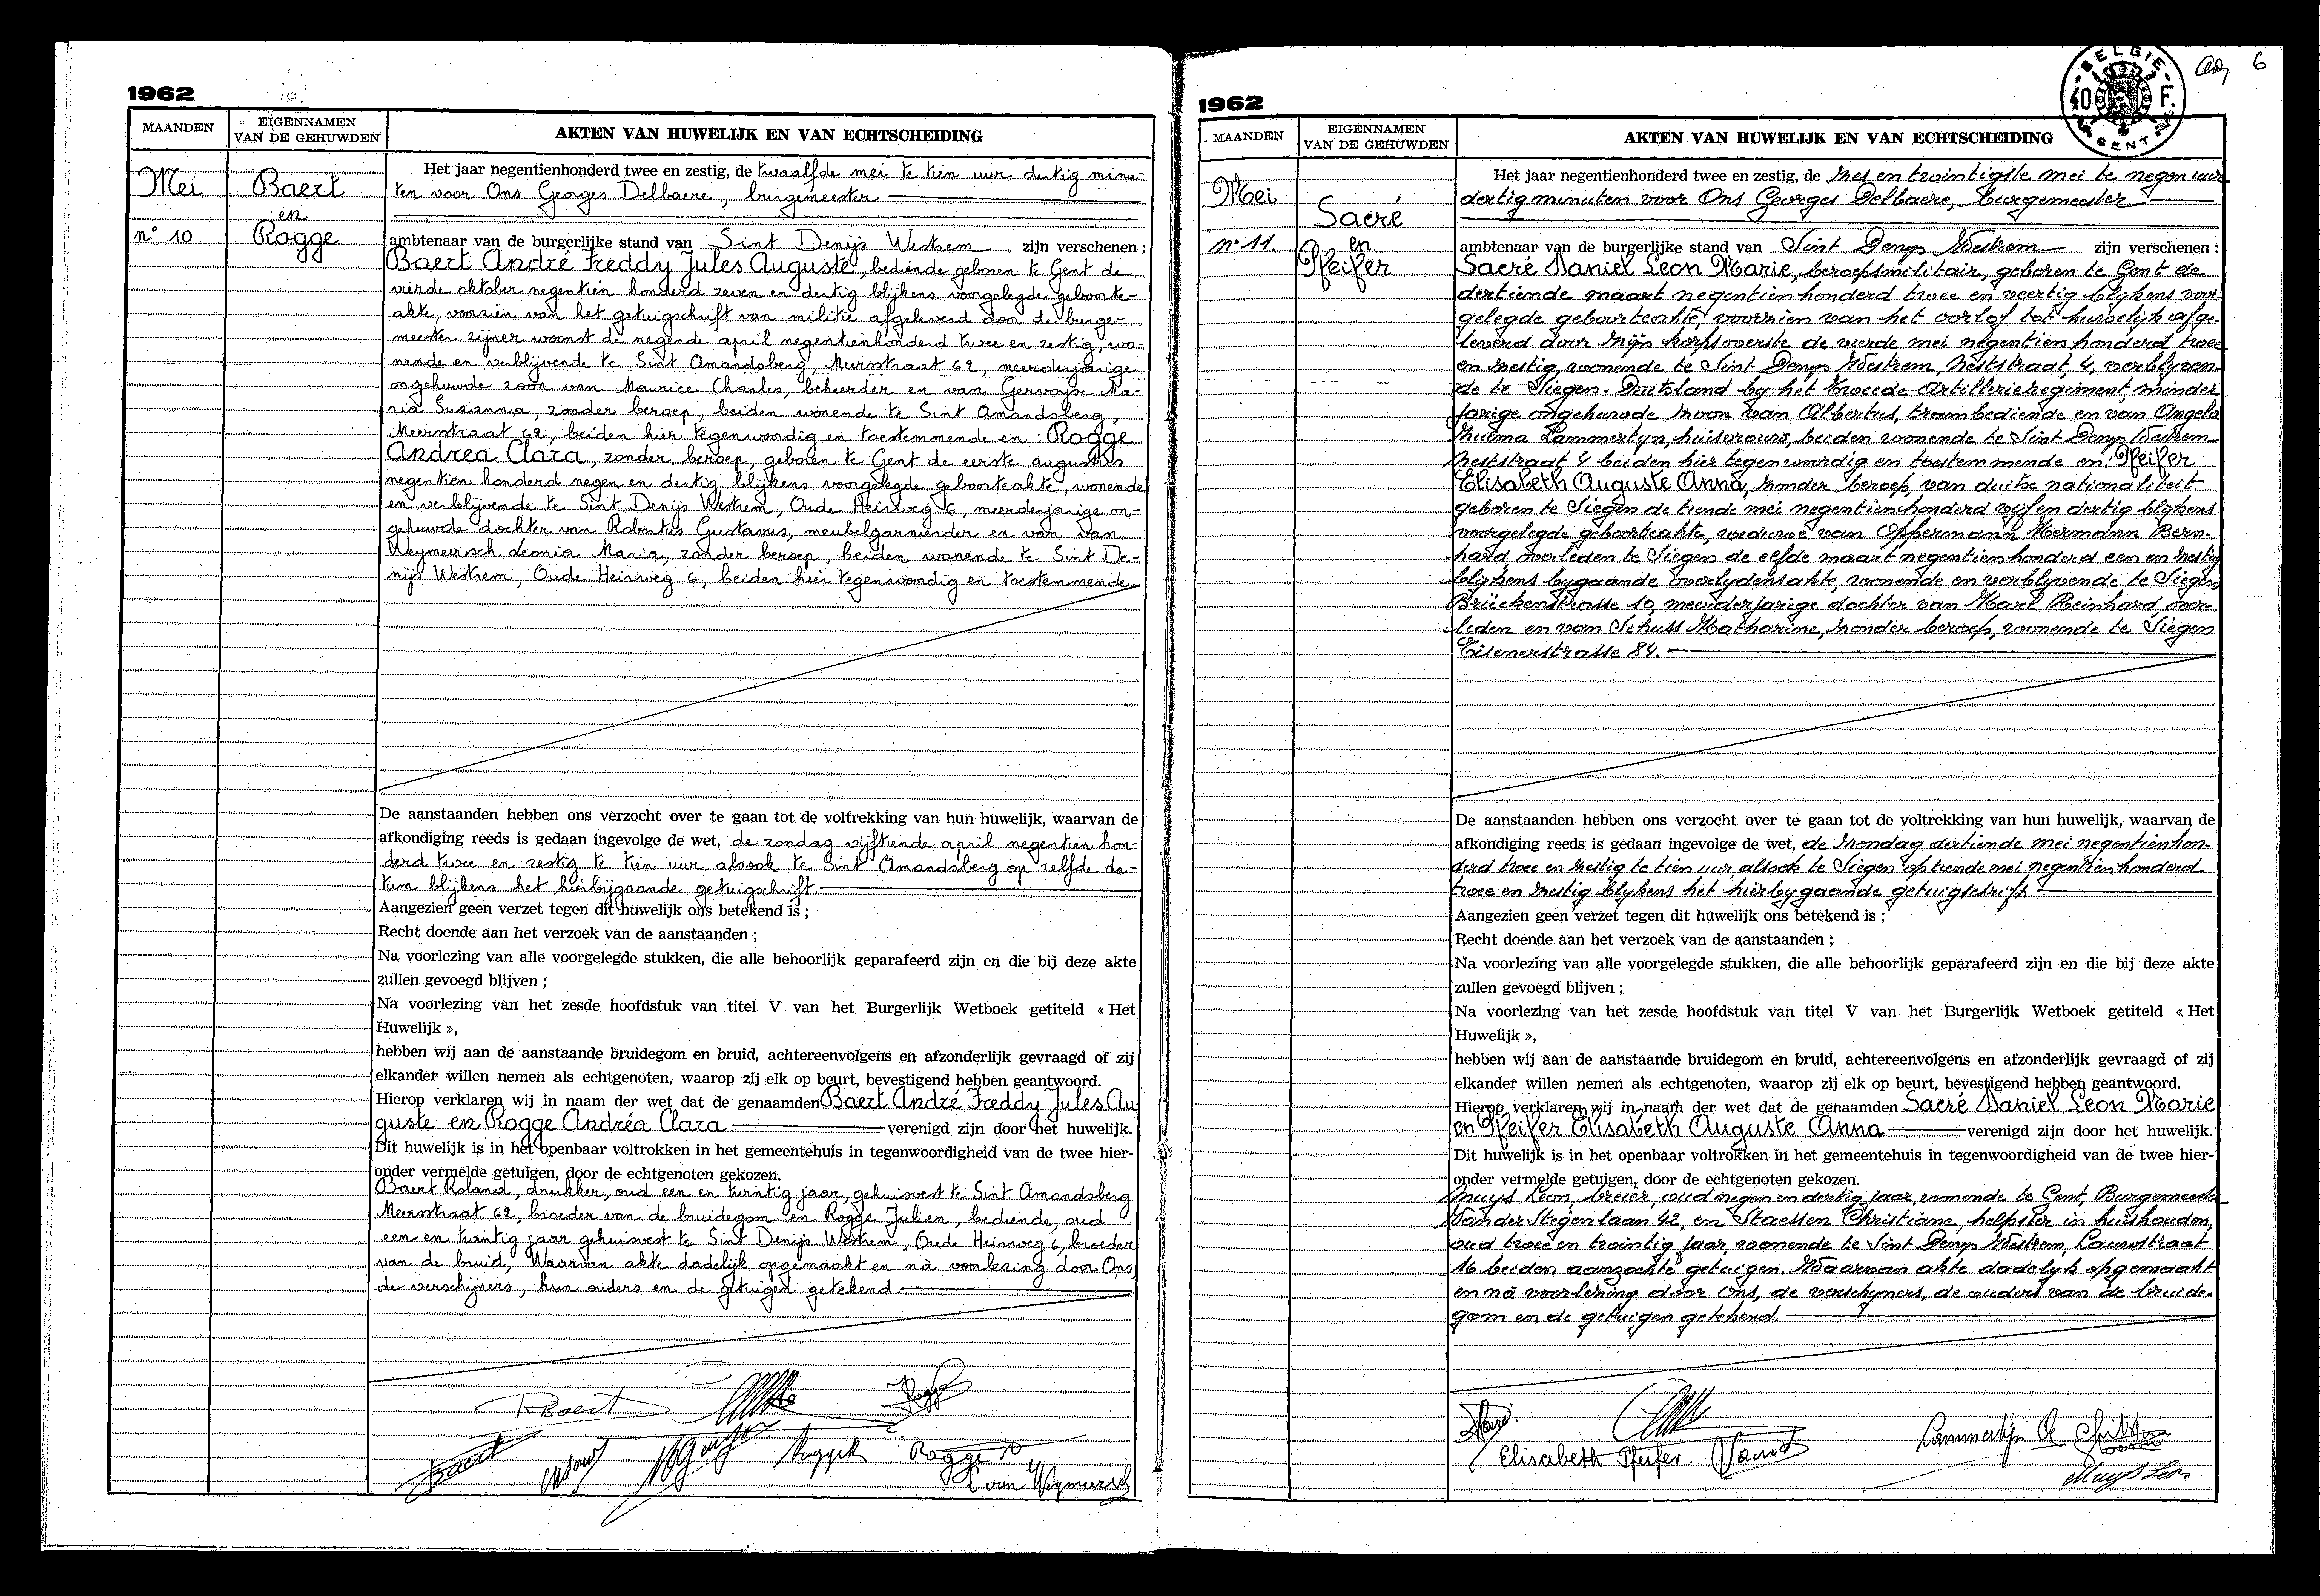 1962
MAANDEN
EIGENNAMEN
VAN DE GEHUWDEN
AKTEN VAN HUWELIJK EN VAN ECHTSCHEIDING
Mei
n° 10
Baert
en
Rogge
Het jaar negentienhonderd twee en zestig, de twaalfde mei te tien uur dertig minu-
ten voor Ons Georges Delbaere, burgemeester
ambtenaar van de burgerlijke stand van Sint Denijs Westrem zijn verschenen :
Baert André Freddy Jules Auguste, bediende geboren te Gent de
vierde oktober negentien honderd zeven en dertig blijkens voorgelegde geboorte-
akte, voorzien van het getuigschrift van militie afgeleverd door de burge-
meester zijner woonst de negende april negentienhonderd twee en zestig, wo-
nende en verblijvende te Sint Amandsberg, Meerstraat 62, meerderjarige
ongehuwde zoon van Maurice Charles, beheerder en van Gervayse Ma-
ria Susanna, zonder beroep, beiden wonende te Sint Amandsberg,
Meerstraat 62, beiden hier tegenwoordig en toestemmende en : Rogge
Andrea Clara, zonder beroep, geboren te Gent de eerste augustus
negentien honderd negen en dertig blijkens voorgelegde geboorteakte, wonende
en verblijvende te Sint Denijs Westrem, Oude Heirweg 6, meerderjarige on-
gehuwde dochter van Robertus Gustavus, meubelgarnierder en van Van
Weymeersch Leonia Maria, zonder beroep, beiden wonende te Sint De-
nijs Westrem, Oude Heirweg 6, beiden hier tegenwoordig en toestemmende
De aanstaanden hebben ons verzocht over te gaan tot de voltrekking van hun huwelijk, waarvan de
afkondiging reeds is gedaan ingevolge de wet, de zondag vijftiende april negentien hon-
derd twee en zestig te tien uur alsook te Sint Amandsberg op zelfde da-
tum blijkens het hierbijgaande getuigschrift
Aangezien geen verzet tegen dit huwelijk ons betekend is ;
Recht doende aan het verzoek van de aanstaanden ;
Na voorlezing van alle voorgelegde stukken, die alle behoorlijk geparafeerd zijn en die bij deze akte
zullen gevoegd blijven ;
Na voorlezing van het zesde hoofdstuk van titel V van het Burgerlijk Wetboek getiteld « Het
Huwelijk »,
hebben wij aan de aanstaande bruidegom en bruid, achtereenvolgens en afzonderlijk gevraagd of zij
elkander willen nemen als echtgenoten, waarop zij elk op beurt, bevestigend hebben geantwoord.
Hierop verklaren wij in naam der wet dat de genaamden Baert André Freddy Jules Au
guste en Rogge Andréa Clara verenigd zijn door het huwelijk.
Dit huwelijk is in het openbaar voltrokken in het gemeentehuis in tegenwoordigheid van de twee hier-
onder vermelde getuigen, door de echtgenoten gekozen.
Baert Roland, drukker, oud een en twintig jaar, gehuisvest te Sint Amandsberg
Meerstraat 62, broeder van de bruidegom en Rogge Julien, bediende, oud
een en twintig jaar gehuisvest te Sint Denijs Westrem, Oude Heirweg 6, broeder
van de bruid, Waarvan akte dadelijk opgemaakt en nà voorlezing door Ons,
de verschijners, hun ouders en de getuigen getekend.
RBaert
Baert
Rogge
L van Weymersch
BELGIE
40 F.
GENT
6
1962
MAANDEN
EIGENNAMEN
VAN DE GEHUWDEN
AKTEN VAN HUWELIJK EN VAN ECHTSCHEIDING
Mei
n° 11.
Sacré
en
Pfeifer
Het jaar negentienhonderd twee en zestig, de zes en twintigste mei te negen uur
dertig minuten voor Ons Georges Delbaere, burgemeester
ambtenaar van de burgerlijke stand van Sint Denys Westrem zijn verschenen :
Sacré Daniel Leon Marie, beroepsmilitair, geboren te Gent de
dertiende maart negentienhonderd twee en veertig blijkens voor-
gelegde geboorteakte, voorzien van het oorlof tot huwelijk afge-
leverd door zijn korpsoverste de vierde mei negentien honderd twee
en zestig, wonende te Sint Denys Westrem, Neststraat 4, verblyven-
de te Siegen-Duitsland by het tweede artillerieregiment, minder
jarige ongehuwde zoon van Albertus, trambediende en van Angela
Zulma Lammertyn, huisvrouw, beiden wonende te Sint Denys Westrem
Neststraat 4 beiden hier tegenwoordig en toestemmende en: Pfeifer
Elisabeth Auguste Anna, zonder beroep, van duitse nationaliteit
geboren te Siegen de tiende mei negentienhonderd vijf en dertig blijkens
voorgelegde geboorteakte, weduwe van Oppermann Hermann Bern-
hard, overleden te Siegen de elfde maart negentienhonderd een en zestig
blijkens bygaande overlydensakte, wonende en verblyvende te Siegen
Brückenstrasse 10, meerderjarige dochter van Karl Reinhard, over-
leden en van Schuss Katharine, zonder beroep, wonende te Siegen
Eisenerstrasse 84.
De aanstaanden hebben ons verzocht over te gaan tot de voltrekking van hun huwelijk, waarvan de
afkondiging reeds is gedaan ingevolge de wet, de zondag dertiende mei negentienhon-
derd twee en zestig te tien uur, alsook te Siegen op tiende mei negentien honderd
twee en zestig blykens het hierbygaande getuigschrift.
Aangezien geen verzet tegen dit huwelijk ons betekend is ;
Recht doende aan het verzoek van de aanstaanden ;
Na voorlezing van alle voorgelegde stukken, die alle behoorlijk geparafeerd zijn en die bij deze akte
zullen gevoegd blijven ;
Na voorlezing van het zesde hoofdstuk van titel V van het Burgerlijk Wetboek getiteld « Het
Huwelijk »,
hebben wij aan de aanstaande bruidegom en bruid, achtereenvolgens en afzonderlijk gevraagd of zij
elkander willen nemen als echtgenoten, waarop zij elk op beurt, bevestigend hebben geantwoord.
Hierop verklaren wij in naam der wet dat de genaamden Sacré Daniel Leon Marie
en Pfeifer Elisabeth Auguste Anna verenigd zijn door het huwelijk.
Dit huwelijk is in het openbaar voltrokken in het gemeentehuis in tegenwoordigheid van de twee hier-
onder vermelde getuigen, door de echtgenoten gekozen.
Muys Leon, breier, oud negen en dertig jaar, wonende te Gent, Burgemeester
Vander Stegen laan 42, en Staessen Christiane, helpster in huishouden,
oud twee en twintig jaar, wonende te Sint Denys Westrem, Lauwstraat
16 beiden aanzochte getuigen. Waarvan akte dadelyk opgemaakt
en nà voorlezing door Ons, de verschyners, de ouders van de bruide-
gom en de getuigen getekend.
Elisabeth Pfeifer.
Lammertijn A
Muys Leon